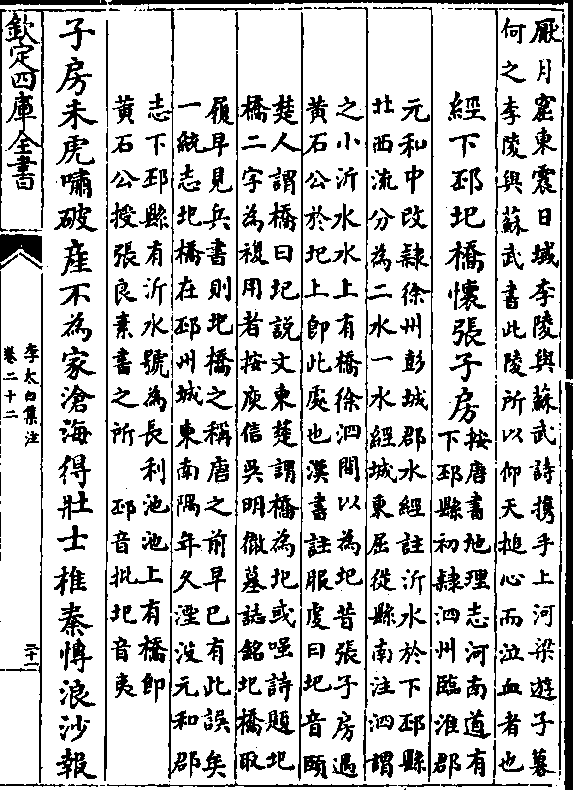 厭月窟東震日域李陵與蘇武詩攜手上河梁遊子暮
何之李陵與蘇武書此陵所以仰天搥心而泣血者也
經下邳圯橋懷張子房
按唐書地理志河南道有
下邳縣初隷泗州臨淮郡
元和中改隷徐州彭城郡水經註沂水於下邳縣
北西流分為二水一水經城東屈從縣南注泗謂
之小沂水水上有橋徐泗間以為圯昔張子房遇
黃石公於圯上即此處也漢書註服虔曰圯音頤
楚人謂橋曰圯說文東楚謂橋為圯或嗤詩題圯
橋二字為複用者按庾信吳明徹墓誌銘圯橋取
履早見兵書則圯橋之稱唐之前早已有此誤矣
一統志圯橋在邳州城東南隅年久湮没元和郡
志下邳縣有沂水號為長利池池上有橋即
黃石公授張良素書之所 邳音批圯音夷
子房未虎嘯破產不為家滄海得壯士椎秦博浪沙報
欽定四庫全書
李太白集注
卷二十二